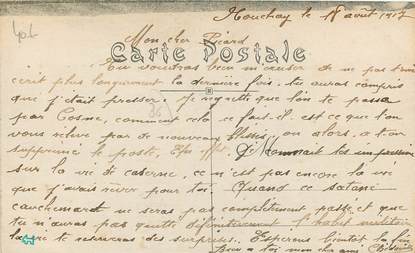 le 18 août 1917
Mon cher Picard
Carte Postale
Tu voudras bien m'excuser de ne pas t'avoir
écrit plus longuement la dernière fois, tu auras compris
que j'étais pressé. Je regrette que l'on te passe
par Cosne, comment cela se fait-il, est-ce que l'on
vous relève par de nouveaux blessés, ou alors a-t-on
supprimé le poste. En effet,
sur la vie de caserne, ce n'est pas encore la vie
que j'avais rêver pour toi. Quand ce satané
cauchemard ne sera pas complètement passé et que
tu n'auras pas quitté définitivement l'habit militaire
la vie te réservera des surprises. Espérons bientôt la fin
mon cher ami